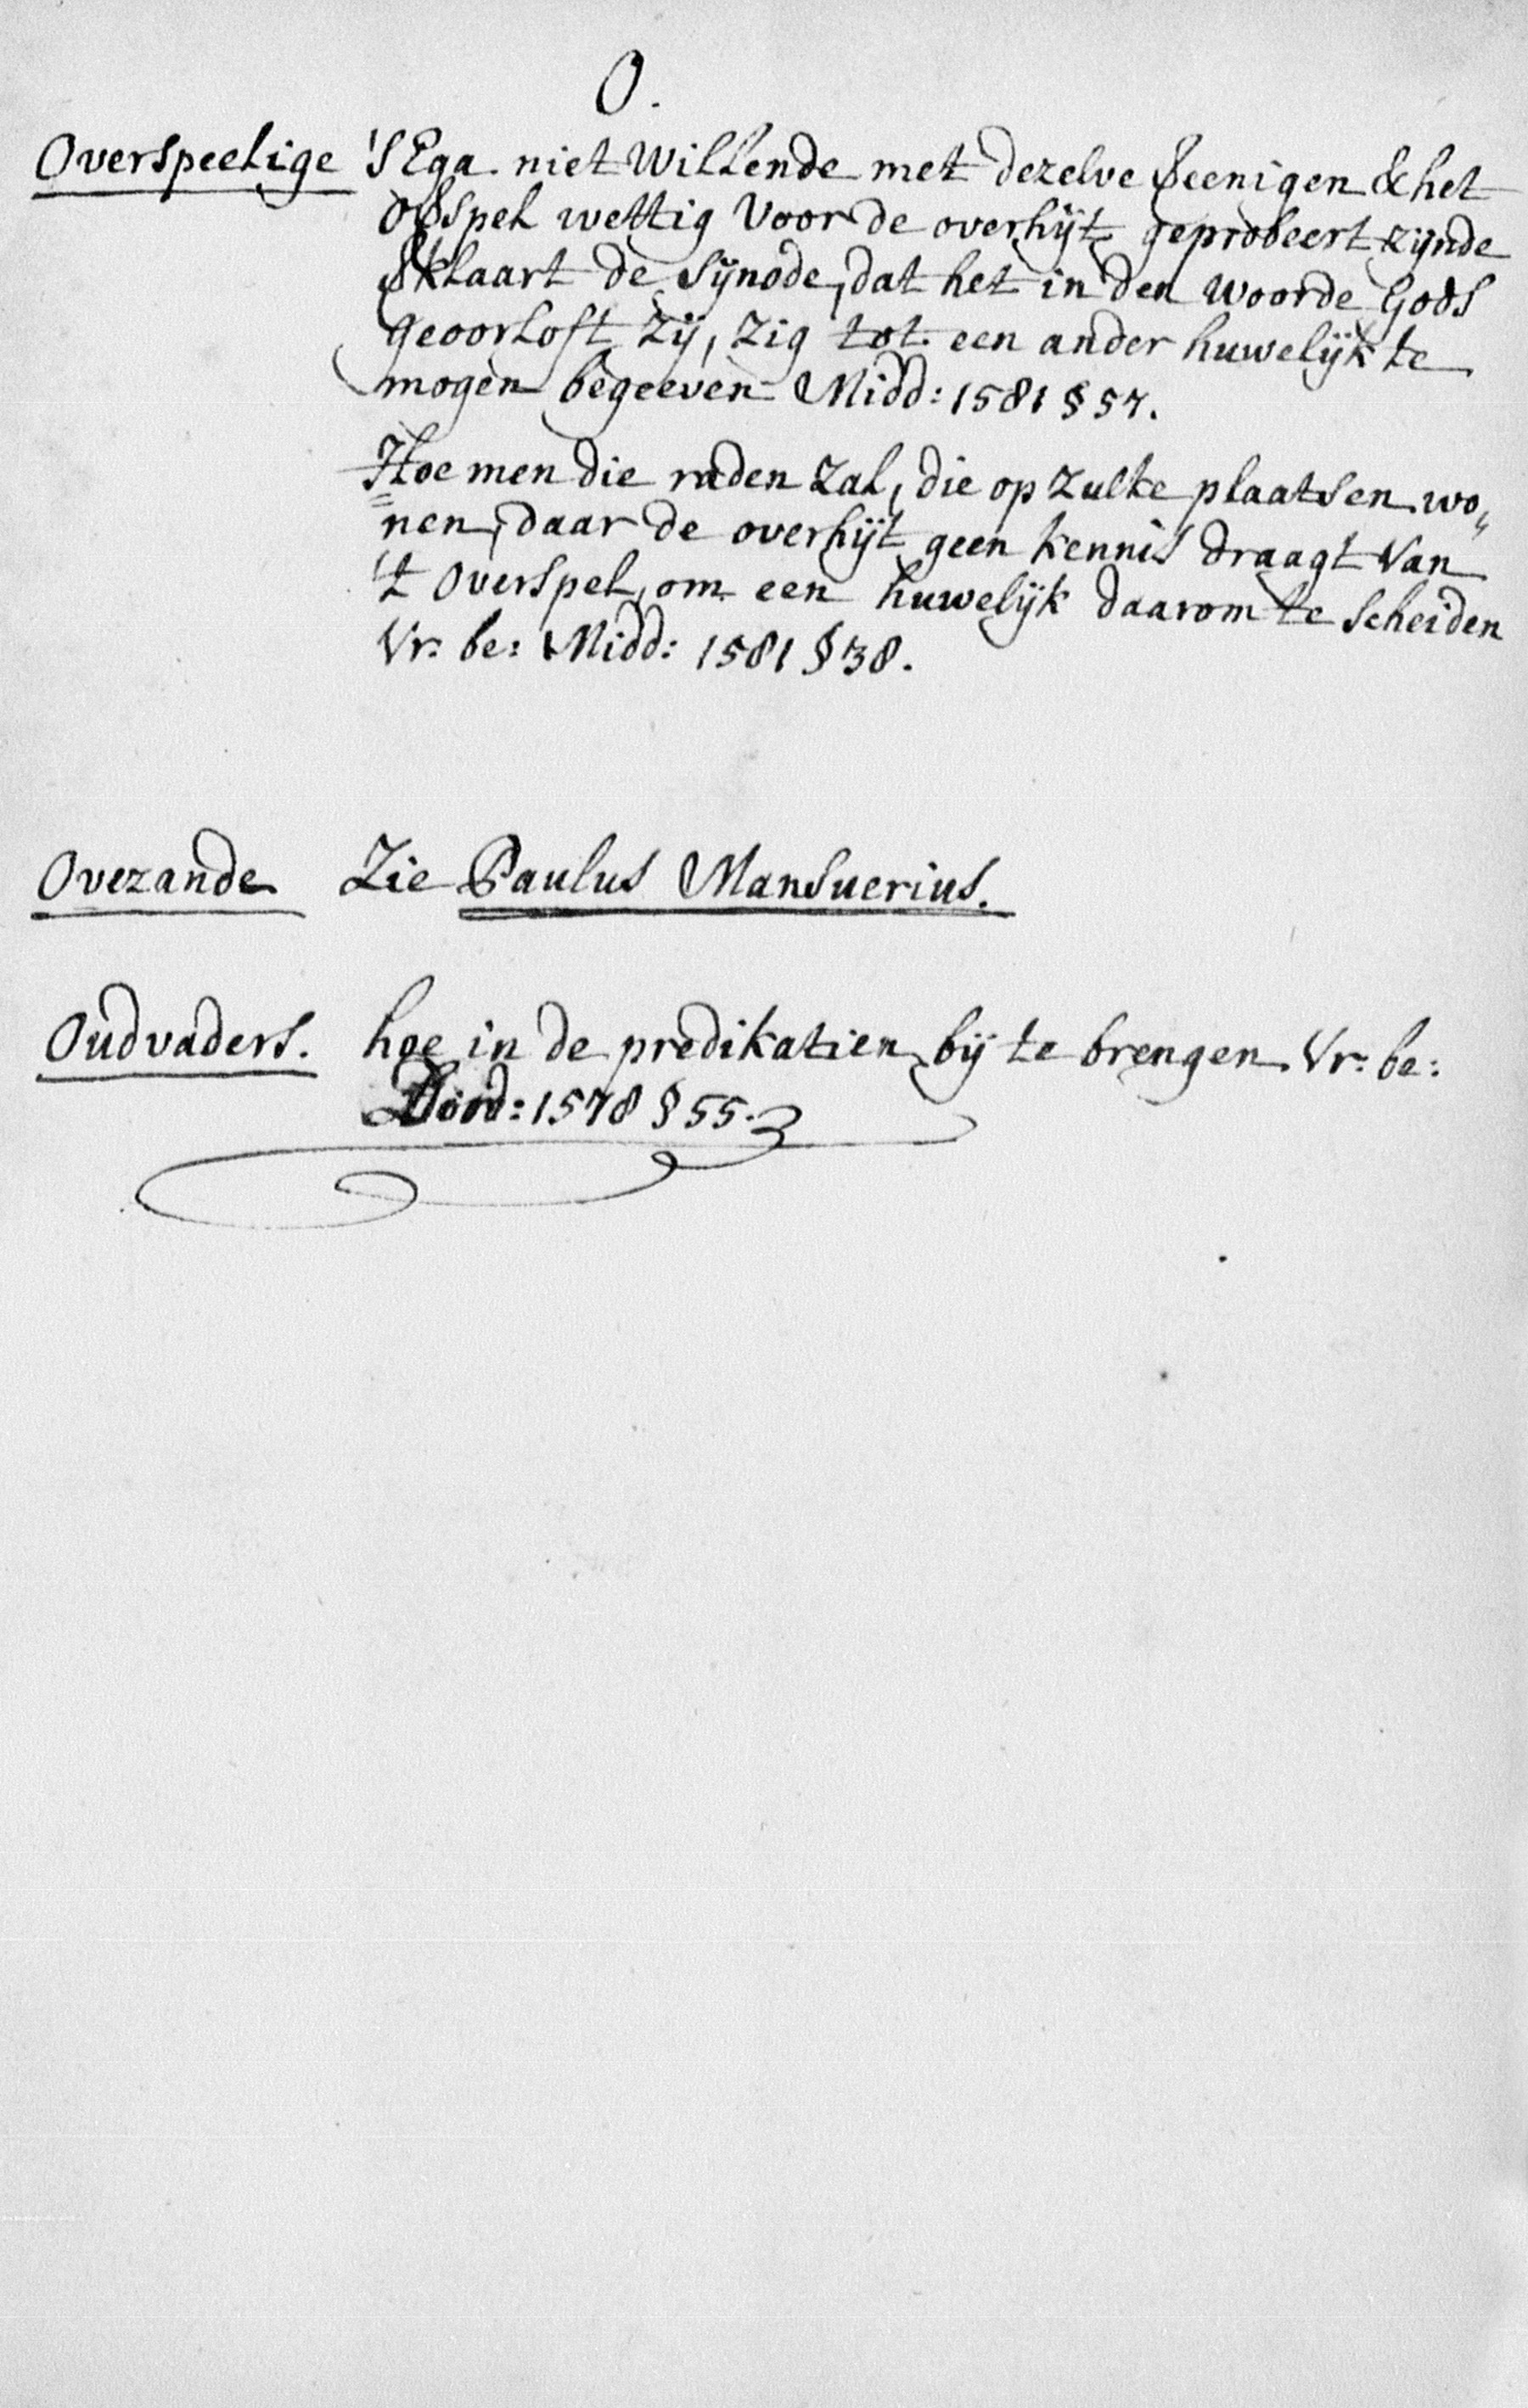 O.
Overspeelige 'S Ega niet Willende met dezelve Veenigen & het
oVspel wettig Voor de overhijt geprobeert zijnde
Vklaart de Sijnode, dat het in den woorde Gods
geoorloft zij, zig tot een ander huwelijk te
mogen begeeven Midd: 1581 § 57.
Hoe men die raden zal, die op zulke plaatsen wo„
=nen, daar de overhijt geen kennis draagt Van
't Overspel, om een huwelijk daarom te scheiden
Vr. be: Midd: 1581 § 38.
Ovezande Zie Paulus Mansuerius.
Oudvaders. hoe in de predikatien bij te brengen Vr. be:
Dord: 1578 § 55.